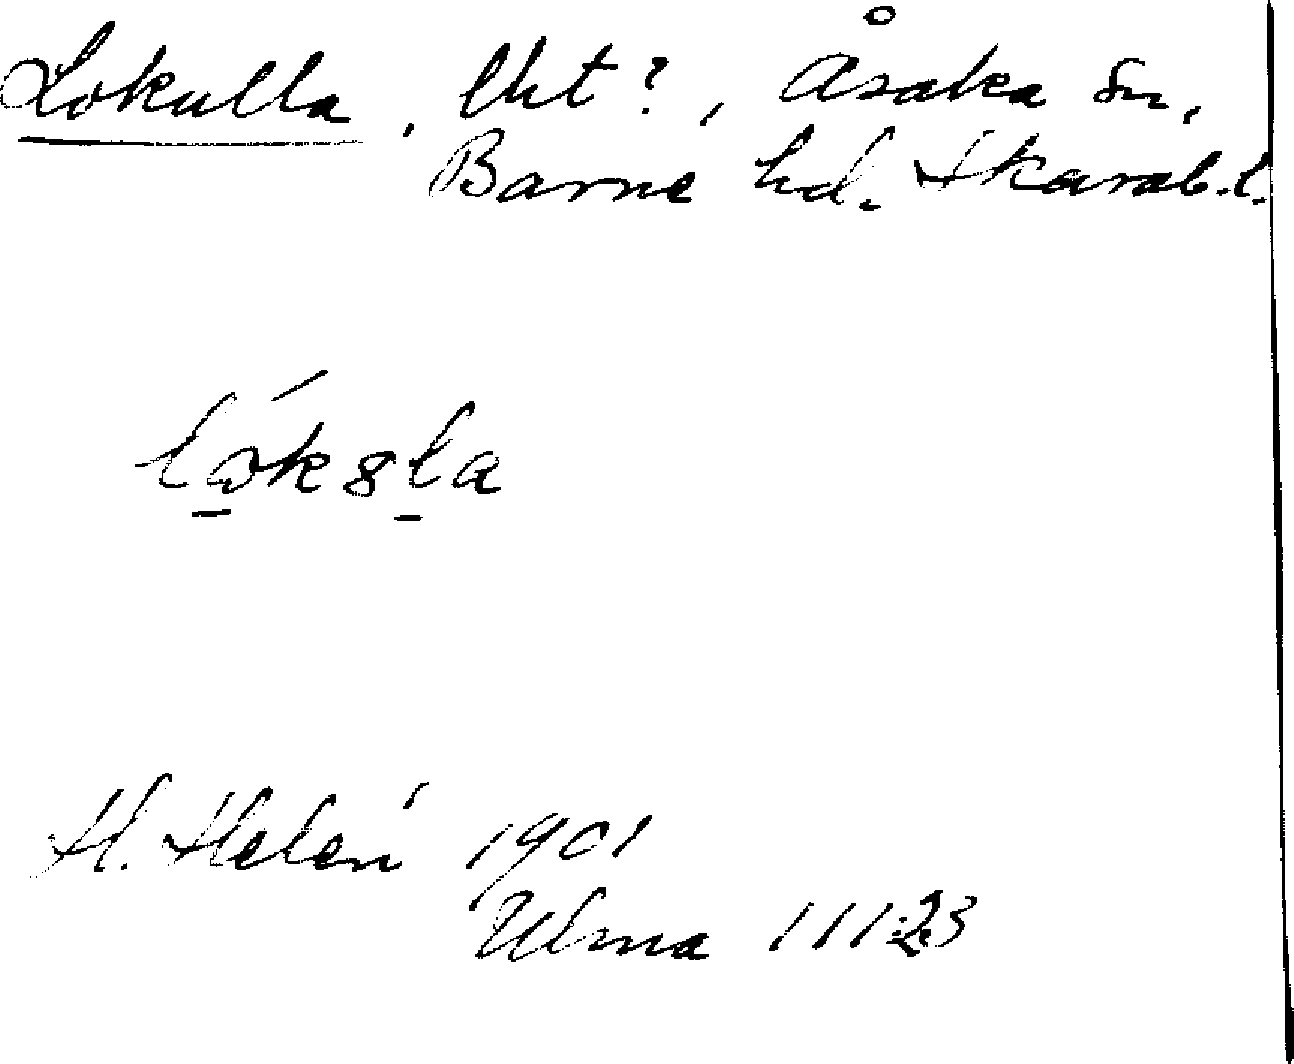 Lokulla, lht?, Åsaka sn,
Barne hd. Skarab.l.
H. Helén 1901
Ulma 111:23